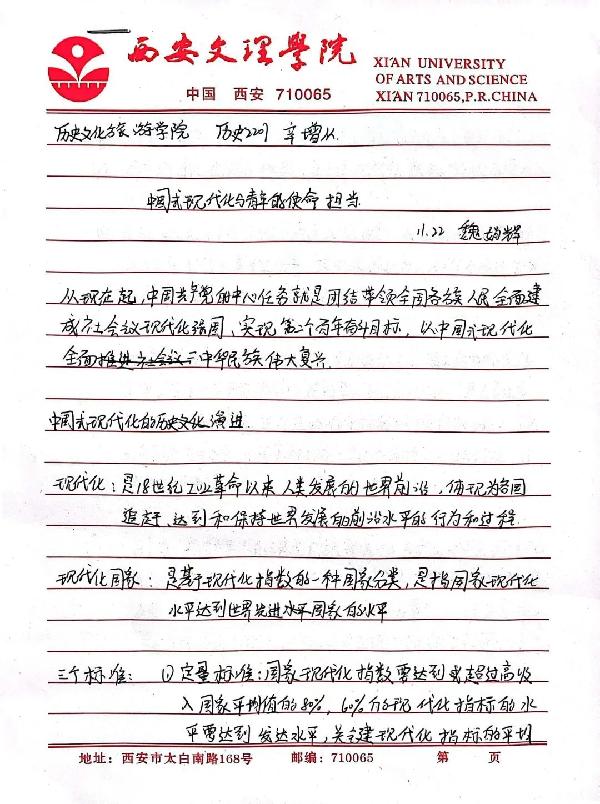 西安文理學院
XI'AN UNIVERSITY
OF ARTS AND SCIENCE
中国 西安 710065
XI'AN 710065,P.R.CHINA
历史文化旅游学院 历史2201 辛增从
中国式现代化与青年的使命担当
11.22 魏娟辉
从现在起,中国共产党的中心任务就是团结带领全国各族人民全面建
成社会议现代化强国、实现第二个百年奋斗目标,以中国式现代化
全面推进中华民族伟大复兴.
中国式现代化的历史文化演进.
现代化:是18世纪工业革命以来人类发展的世界前沿,体现为各国
追赶、达到和保持世界发展的前沿水平的行为和过程.
现代化国家:是基于现代化指数的一种国家分类,是指国家现代化
水平达到世界先进水平国家的水平
三个标准:①定量标准:国家现代化指数要达到或超过高收
入国家平均值的80%,60%的现代化指标的水
平要达到发达水平,关键现代化指标的平均
地址:西安市太白南路168号 邮编:710065 第 页